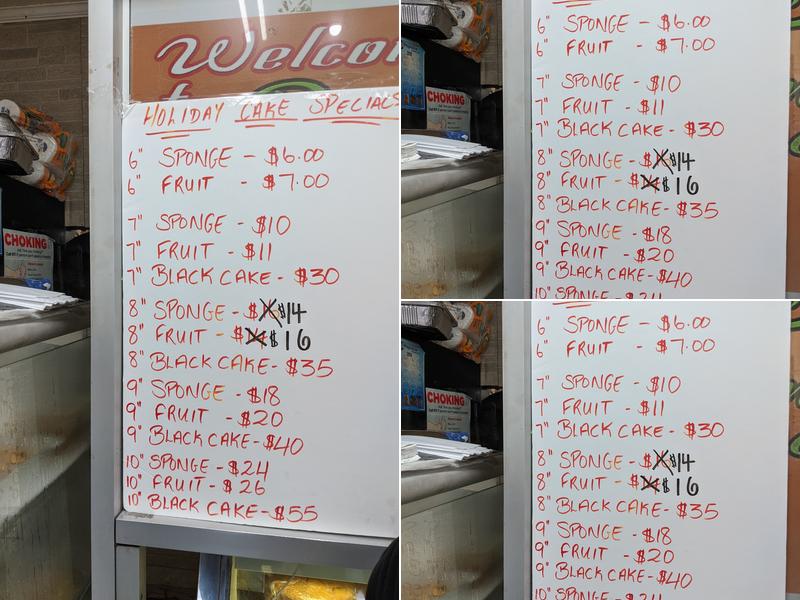 Welco
HOLIDAY CAKE SPECIALS
6" SPONGE - $6.00
6" FRUIT - $7.00
7" SPONGE - $10
7" FRUIT - $11
7" BLACK CAKE - $30
8" SPONGE - $14
8" FRUIT - $16
8" BLACK CAKE - $35
9" SPONGE - $18
9" FRUIT - $20
9" BLACK CAKE - $40
10" SPONGE - $24
10" FRUIT - $26
10" BLACK CAKE - $55
CHOKING
6" SPONGE - $6.00
6" FRUIT - $7.00
7" SPONGE - $10
7" FRUIT - $11
7" BLACK CAKE - $30
8" SPONGE - $14
8" FRUIT - $16
8" BLACK CAKE - $35
9" SPONGE - $18
9" FRUIT - $20
9" BLACK CAKE - $40
10" SPONGE - $24
CHOKING
6" SPONGE - $6.00
6" FRUIT - $7.00
7" SPONGE - $10
7" FRUIT - $11
7" BLACK CAKE - $30
8" SPONGE - $14
8" FRUIT - $16
8" BLACK CAKE - $35
9" SPONGE - $18
9" FRUIT - $20
9" BLACK CAKE - $40
10" SPONGE - $24
CHOKING